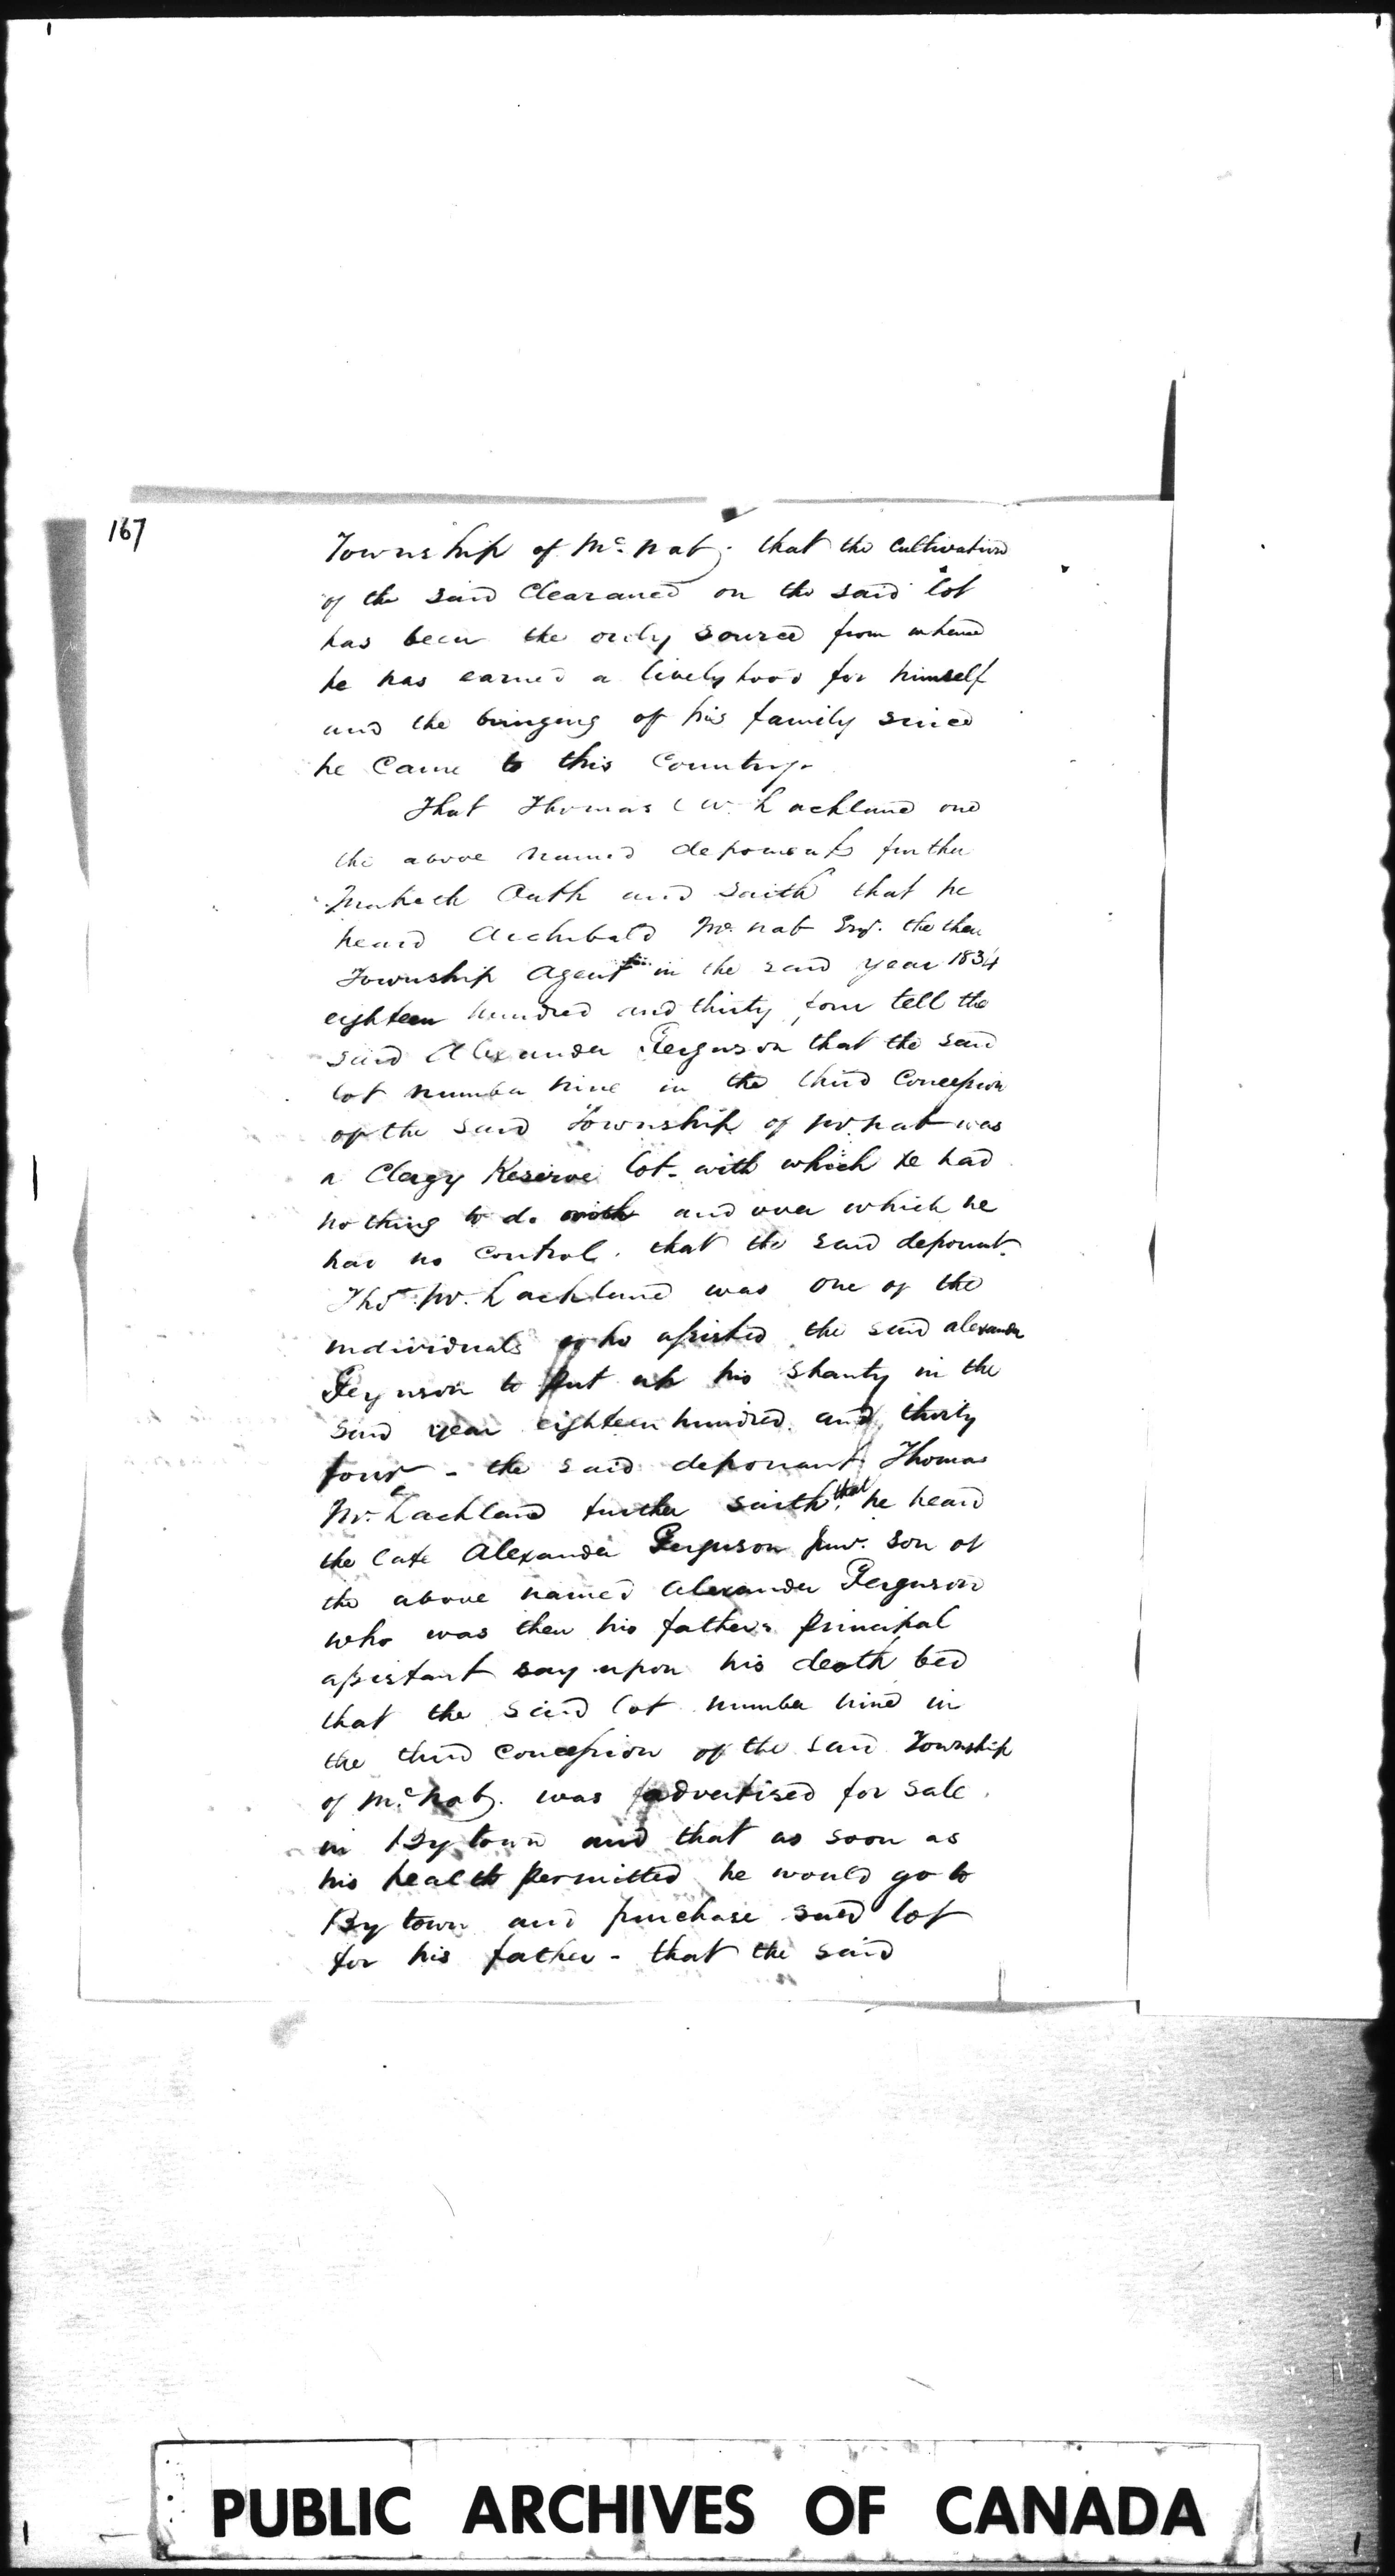 167
Township of Mc.nab; that the Cultivation
of the said Clearance on the said lot
has been the only source from whence
he has earned a livelyhood for himself
and the bringing of his family since
he Came to this Country.
That Thomas Mc. Lachland one
the above named deponents further
Maketh Oath and saith that he
heard Archibald Mc. nab Esqr. the then
Township Agent in the said year 1834
eighteen hundred and thirty four tell the
said Alexander Ferguson that the said
lot number nine in the third Concession
of the said Township of Mc.nab was
a Clergy Reserve lot - with which he had
nothing to do with and over which he
had no Control. that the said deponent.
Thos. Mc. Lachland was one of the
individuals who assisted the said alexander
Ferguson to put up his Shanty in the
said year eighteen hundred and thirty
four - the said deponant Thomas
Mc. Lachland further saith, that he heard
the late Alexander Ferguson Junr. son of
the above named Alexander Ferguson
who was then his fathers principal
assistant say upon his death bed
that the said lot number nine in
the third concession of the said Township
of Mc.nab. was advertised for sale
in Bytown and that as soon as
his health permitted he would go to
Bytown and purchase said lot
for his father - that the said
PUBLIC ARCHIVES OF CANADA